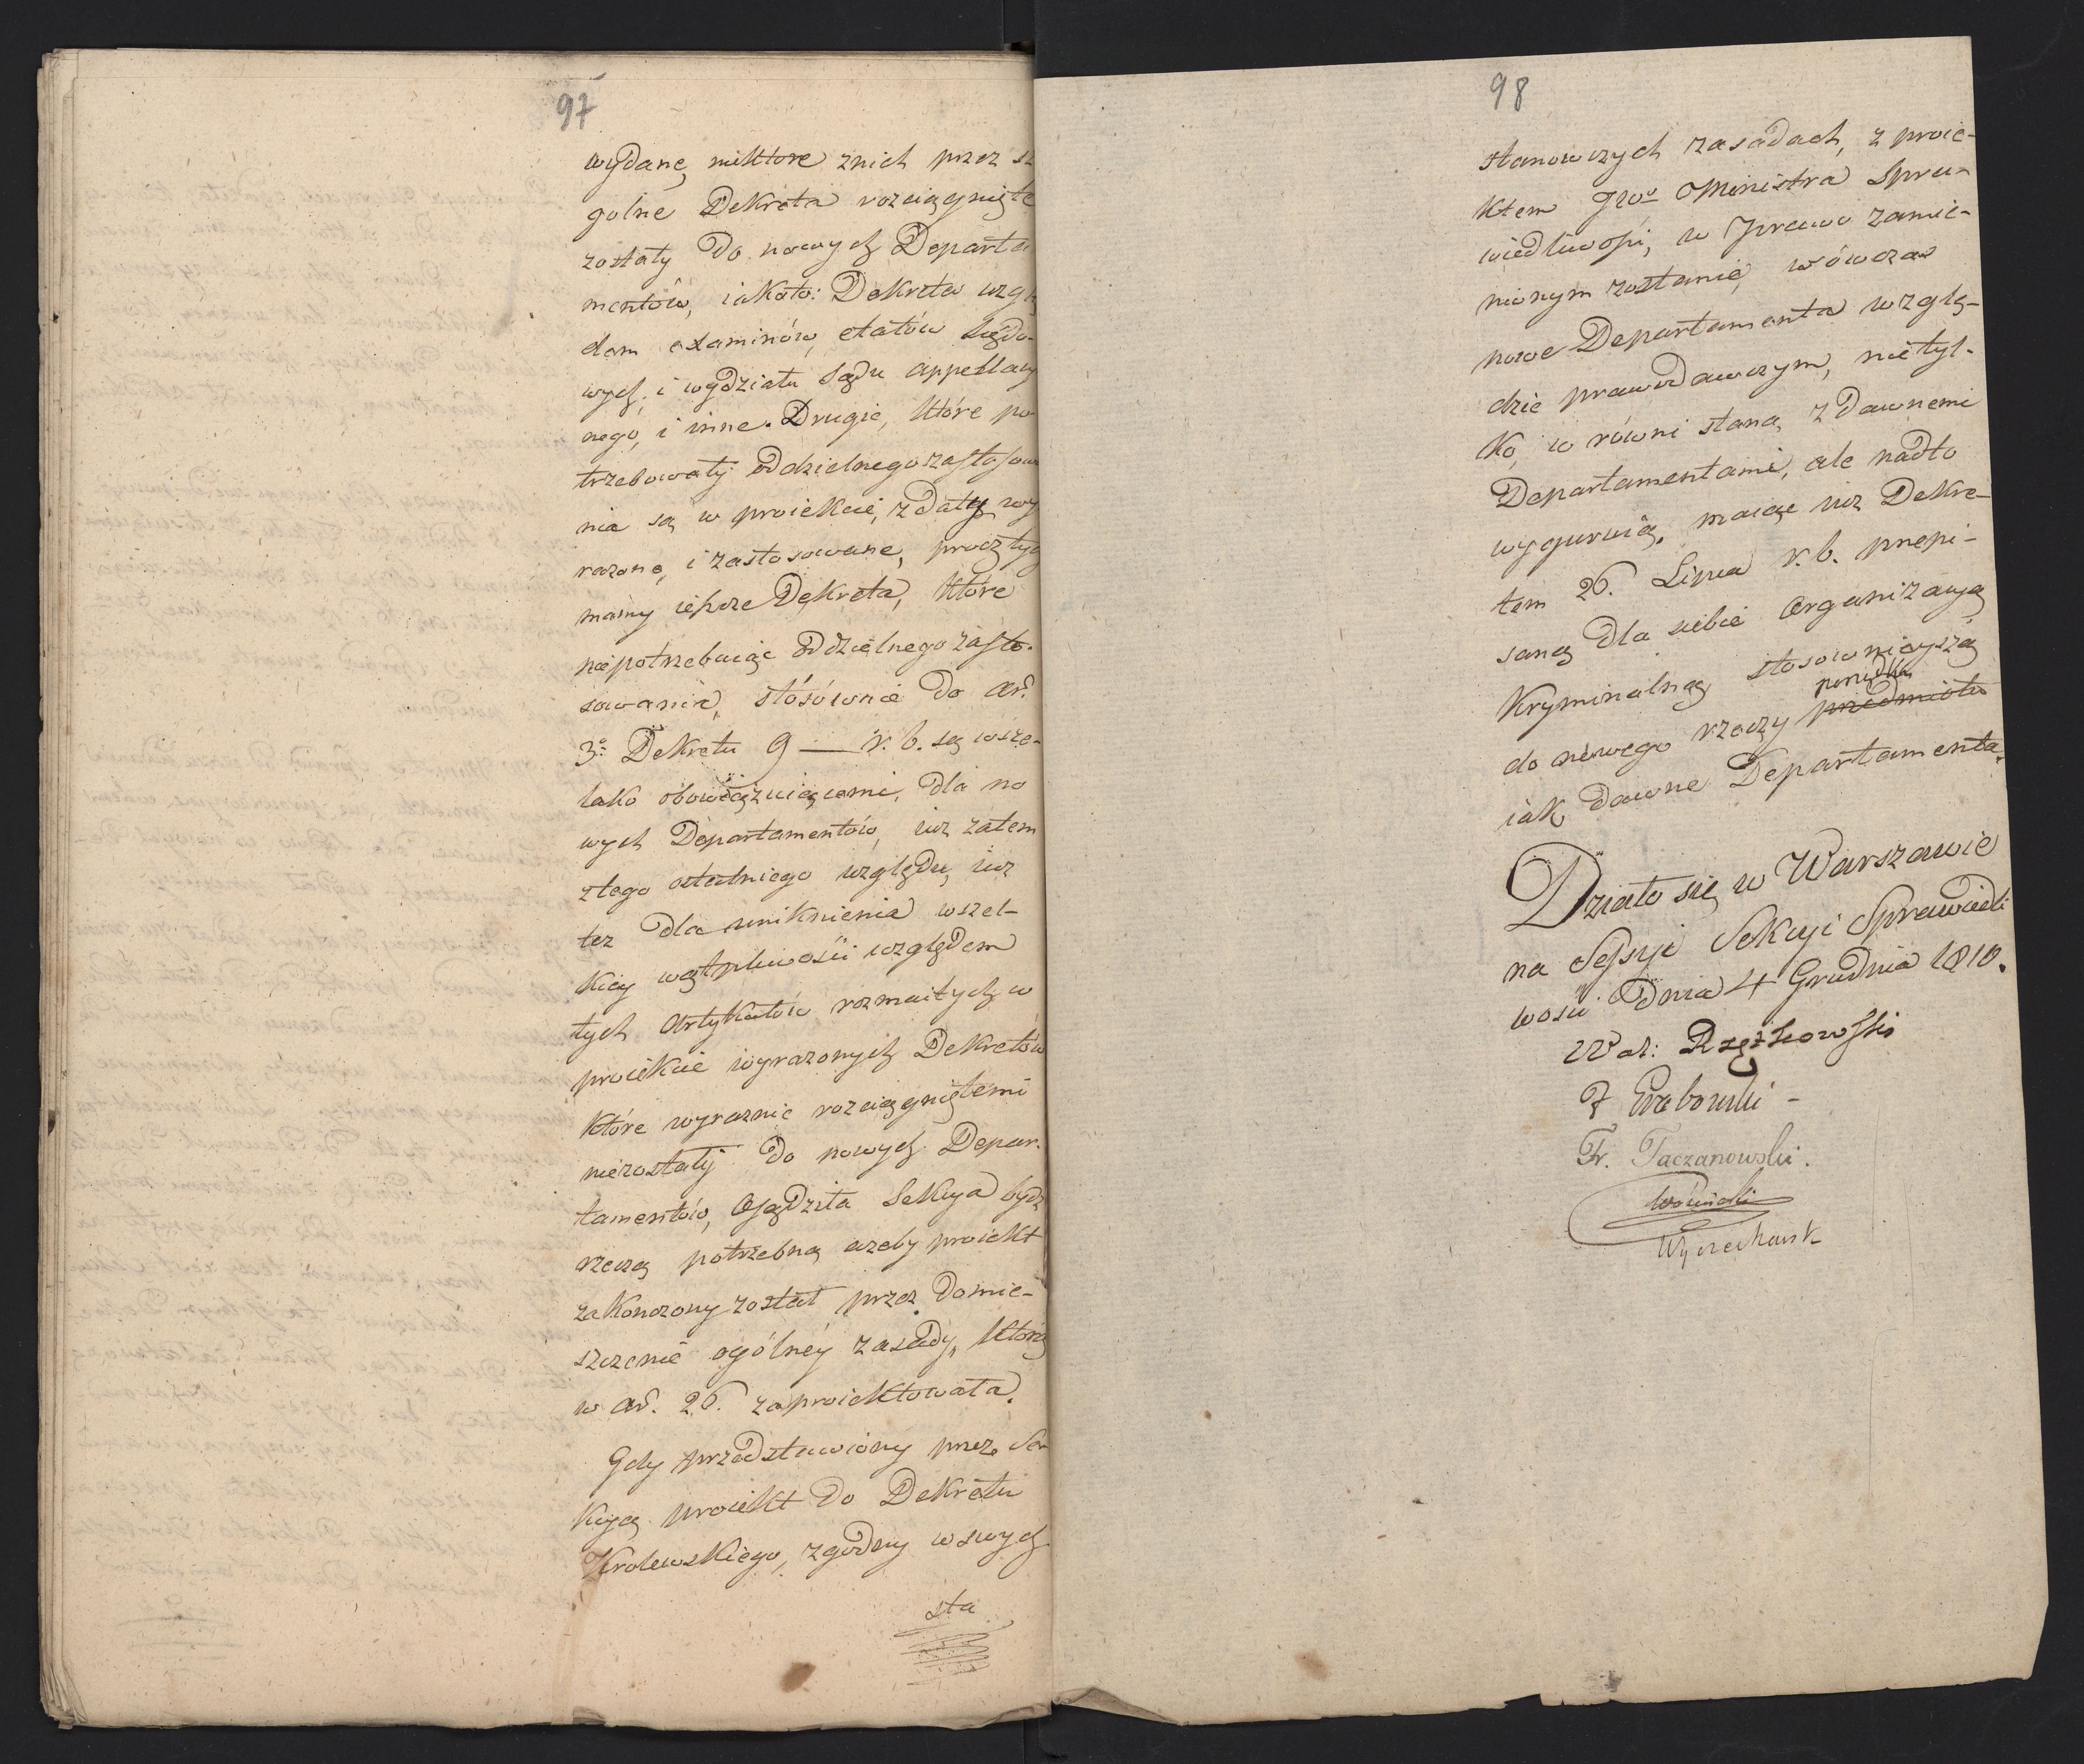 97
wydane, niktóre znich przez sz
gólne Dekreta rozciągnięte
zostały do nowych Departa
mentów, iakoto: Dekreta wzglę
dem examinów, etatów Sądo-
wych, i wydziału Sądu appellacy
nego, i inne. Drugie, które po
trzebowały oddzielnego zastosowa
nia są w proiekcie, z daty wy
rażone, i zastosowane, procz tych
mamy ieszcze Dekreta, które
niepotrzebuiąc oddzielnego zasto-
sowania, stósównie do art.
3o Dekretu 9 — r. b. są wsze-
lako obowiązuiącemi, dla no
wych Departamentów, iuż zatem
ztego ostatniego względu, iuż
też dla uniknienia wszel-
kiey wątpliwości względem
tych Artykułów rozmaitych w
proiekcie wyrażonych Dekretów
które wyraźnie rozciągniętemi
niezostały do nowych Depar-
tamentów, Osądziła Sekcya bydź
rzeczą potrzebną ażeby proiekt
zakonczony został przez domie-
szczenie ogólnéy zasady, którą
w art. 26. zaproiektowała.
Gdy przedstawiony przez Se
kcyą proiekt do Dekretu
Krolewskiego, zgodny w swych
sta
98
stanowczych zasadach, z proie-
ktem JWo Ministra Spra-
wiedliwości, w Prawo zamie-
nionym zostanie, wówczas
nowe Departamenta wzglę-
dzie prawodawczym, nietyl-
ko, w równi staną z dawnemi
Departamentami, ale nadto
wyguruią, maiąc iuż Dekre-
tem 26. Lipca r. b. przepi-
saną dla siebie Organizacyą
Kryminalną stosownieyszą
do nowego rzeczy porządku przedmiotu
iak dawne Departamenta.
Działo się w Warszawie
na Sessyi Sekcyi Sprawiedli
wości dnia 4 Grudnia 1810.
Wal: Rzętkowski
J Grabowski -
Fr. Taczanowski.
Woźnicki
Wyczechowski